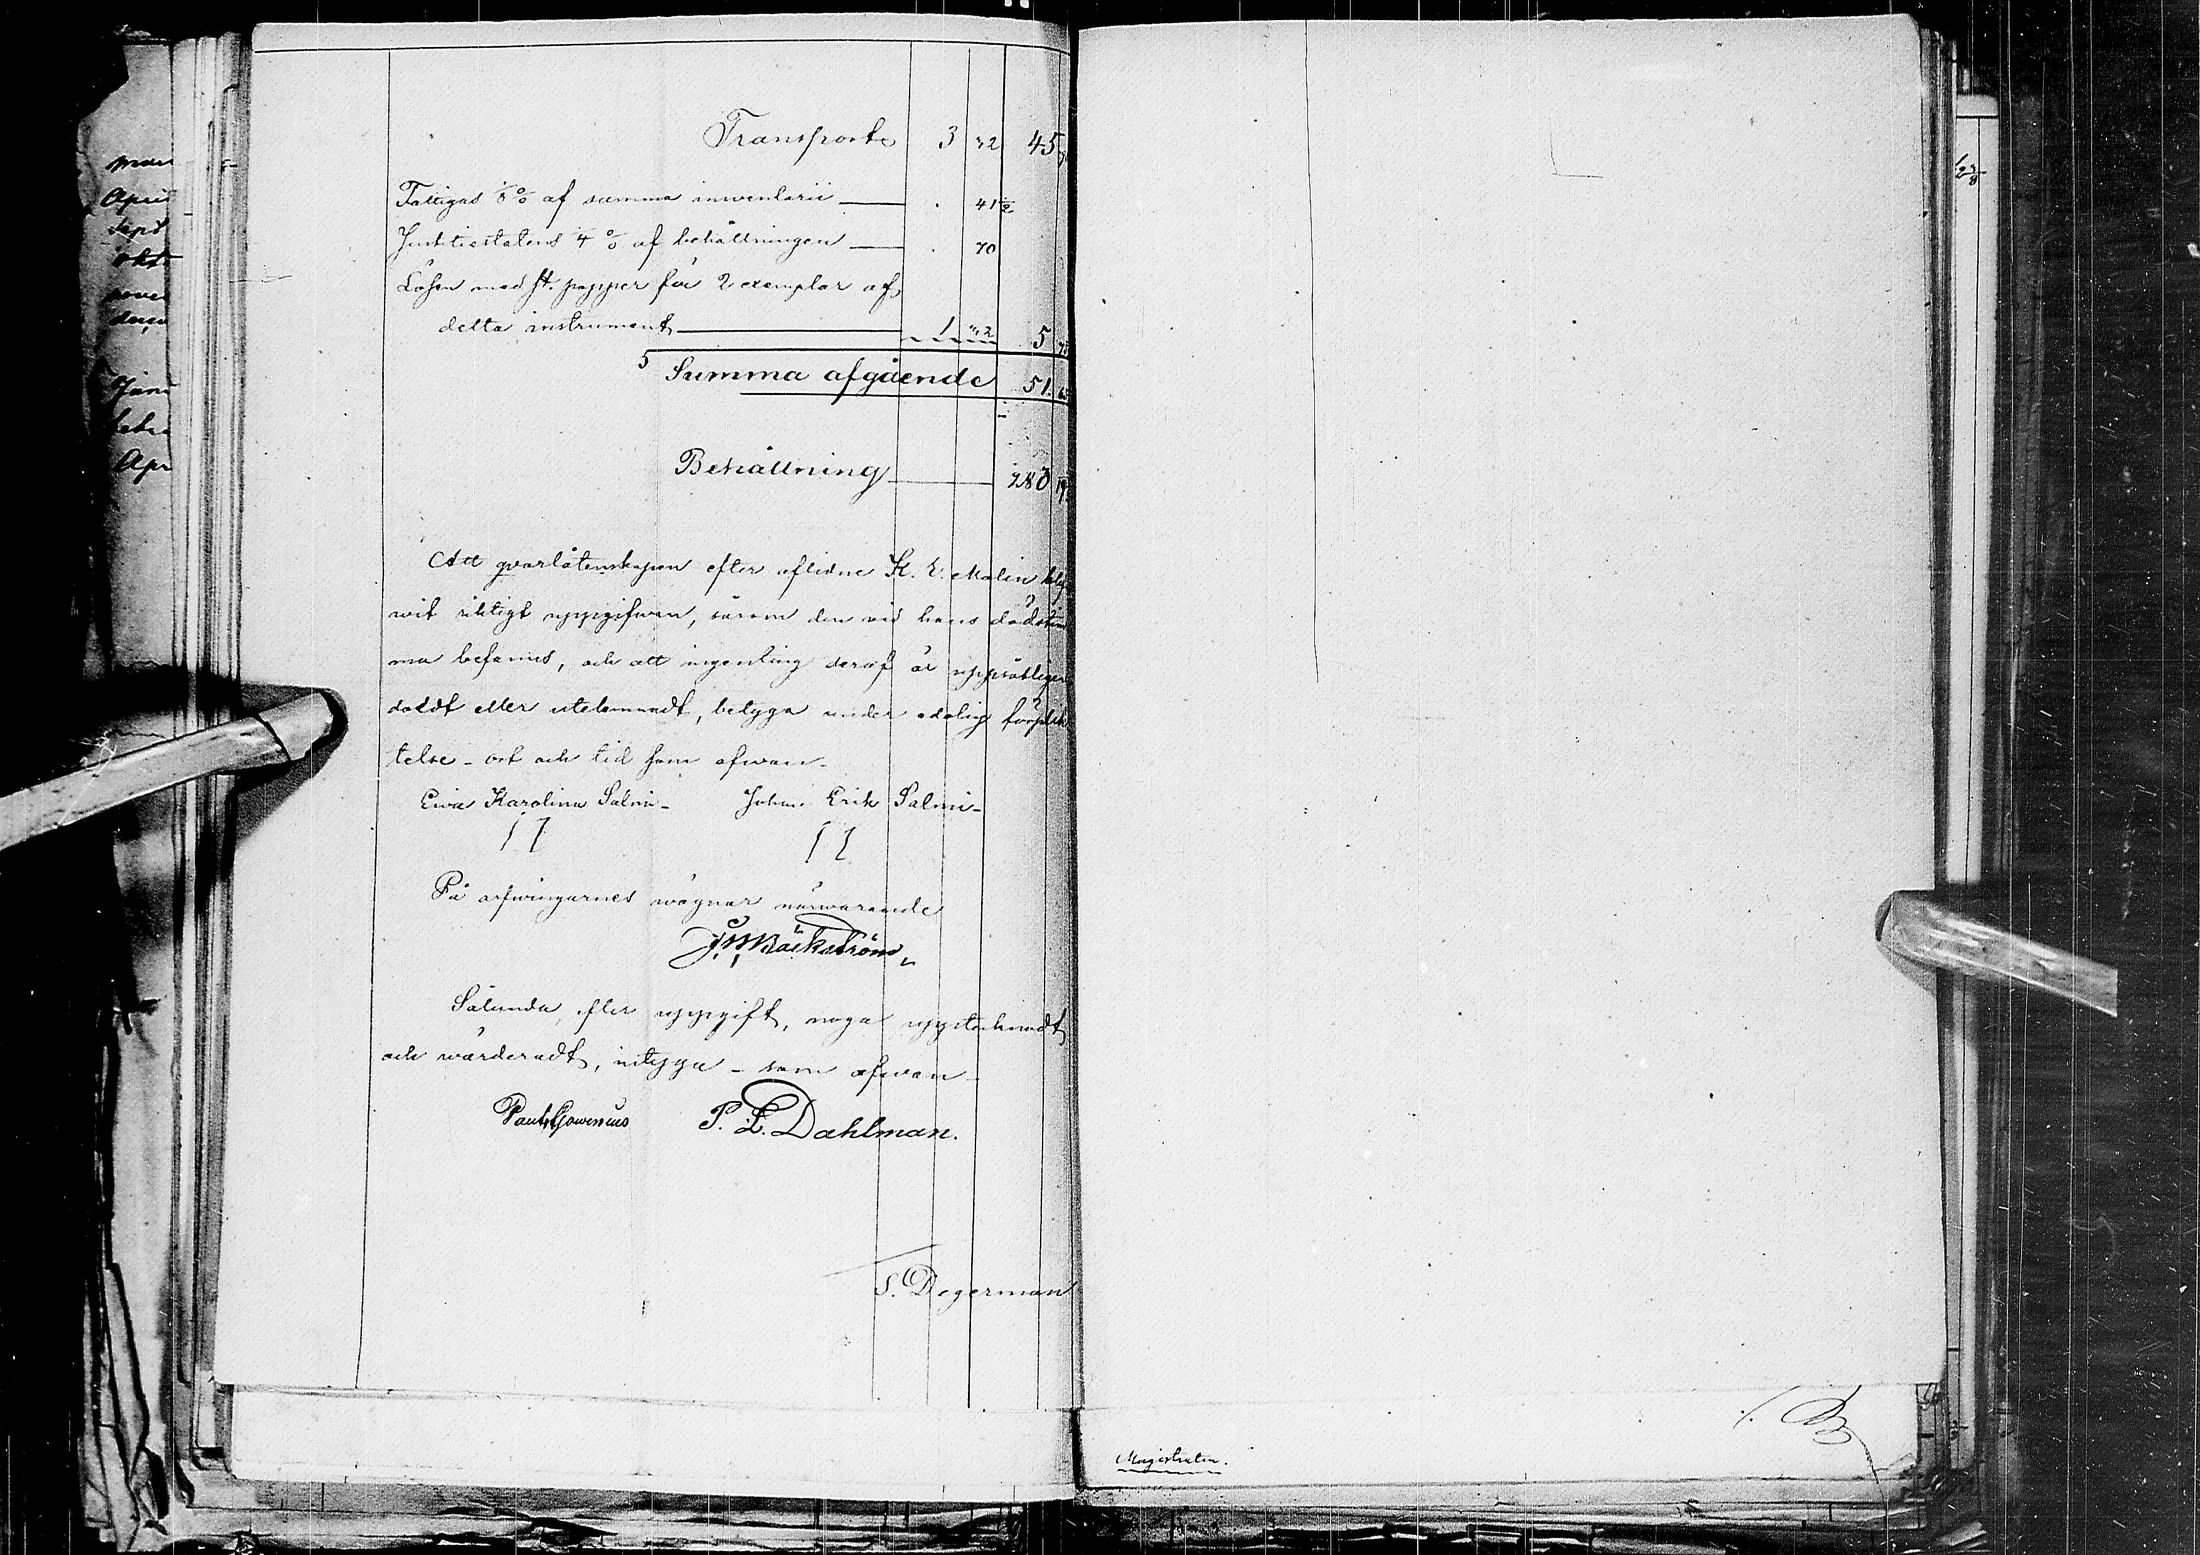 Transporte 3 32 45
Fattigas 1/8 % af summa inventarii — . 41 1/2
Justitiestatens 1/4 % af behållningen — . 70
Lösen med st. papper för 2 exemplar af
detta instrument — 1 5
Summa afgående 51.
Behållning — 280 19
Att qvarlåtenskapen efter aflidne K. E. Malin
wit riktigt uppgifwen, sådan den vid hans dödstim
ma befanns, och att ingenting deraf är uppsåtligen
doldt eller utelemnadt, betyga under edelig förplik
telse – ort och tid som ofwan –
Ewa Karolina Salmi – Johan Erik Salmi –
På arfwingarnes wägnar närwarande
Bäckström
Sålunda, efter uppgift, noga upptecknadt
och wärderadt, intyga – som ofwan –
P. L. Dahlman.
S. Degerman
Magistraten.
mar
April
Sept
okt
nover
decem
Janu
febr
Apr